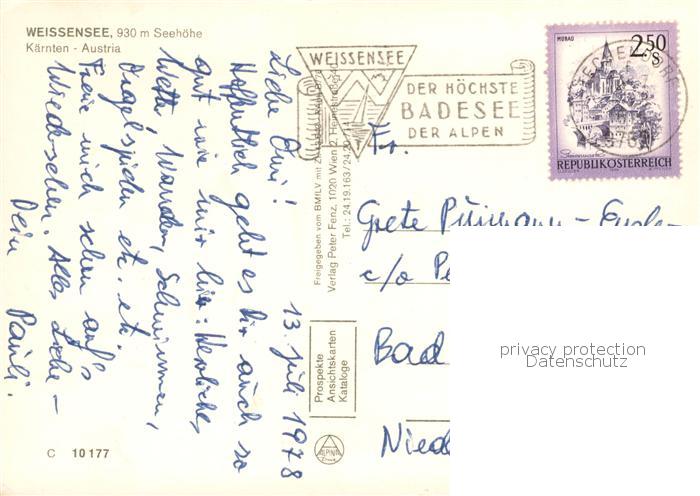 WEISSENSEE, 930 m Seehöhe
Kärnten - Austria
13. Juli 1978
Liebe Omi!
Hoffentlich geht es Dir auch so
gut wie mir hier: Herrliches
Wetter, Wandern, Schwimmen,
Orgelspielen etc. etc.
Freue mich schon auf's
Wiedersehen. Alles Liebe –
Dein Pauli.
C 10 177
Freigegeben vom BMfLV mit
Verlag Peter Fenz, 1020 Wien 2,
Tel.: 24.19.163/24.29
Prospekte
Ansichtskarten
Kataloge
ALPINA
WEISSENSEE
DER HÖCHSTE
BADESEE
DER ALPEN
MURAU
2.50
S
REPUBLIK ÖSTERREICH
Fr.
Grete
c/o
Bad
Nied
privacy protection
Datenschutz